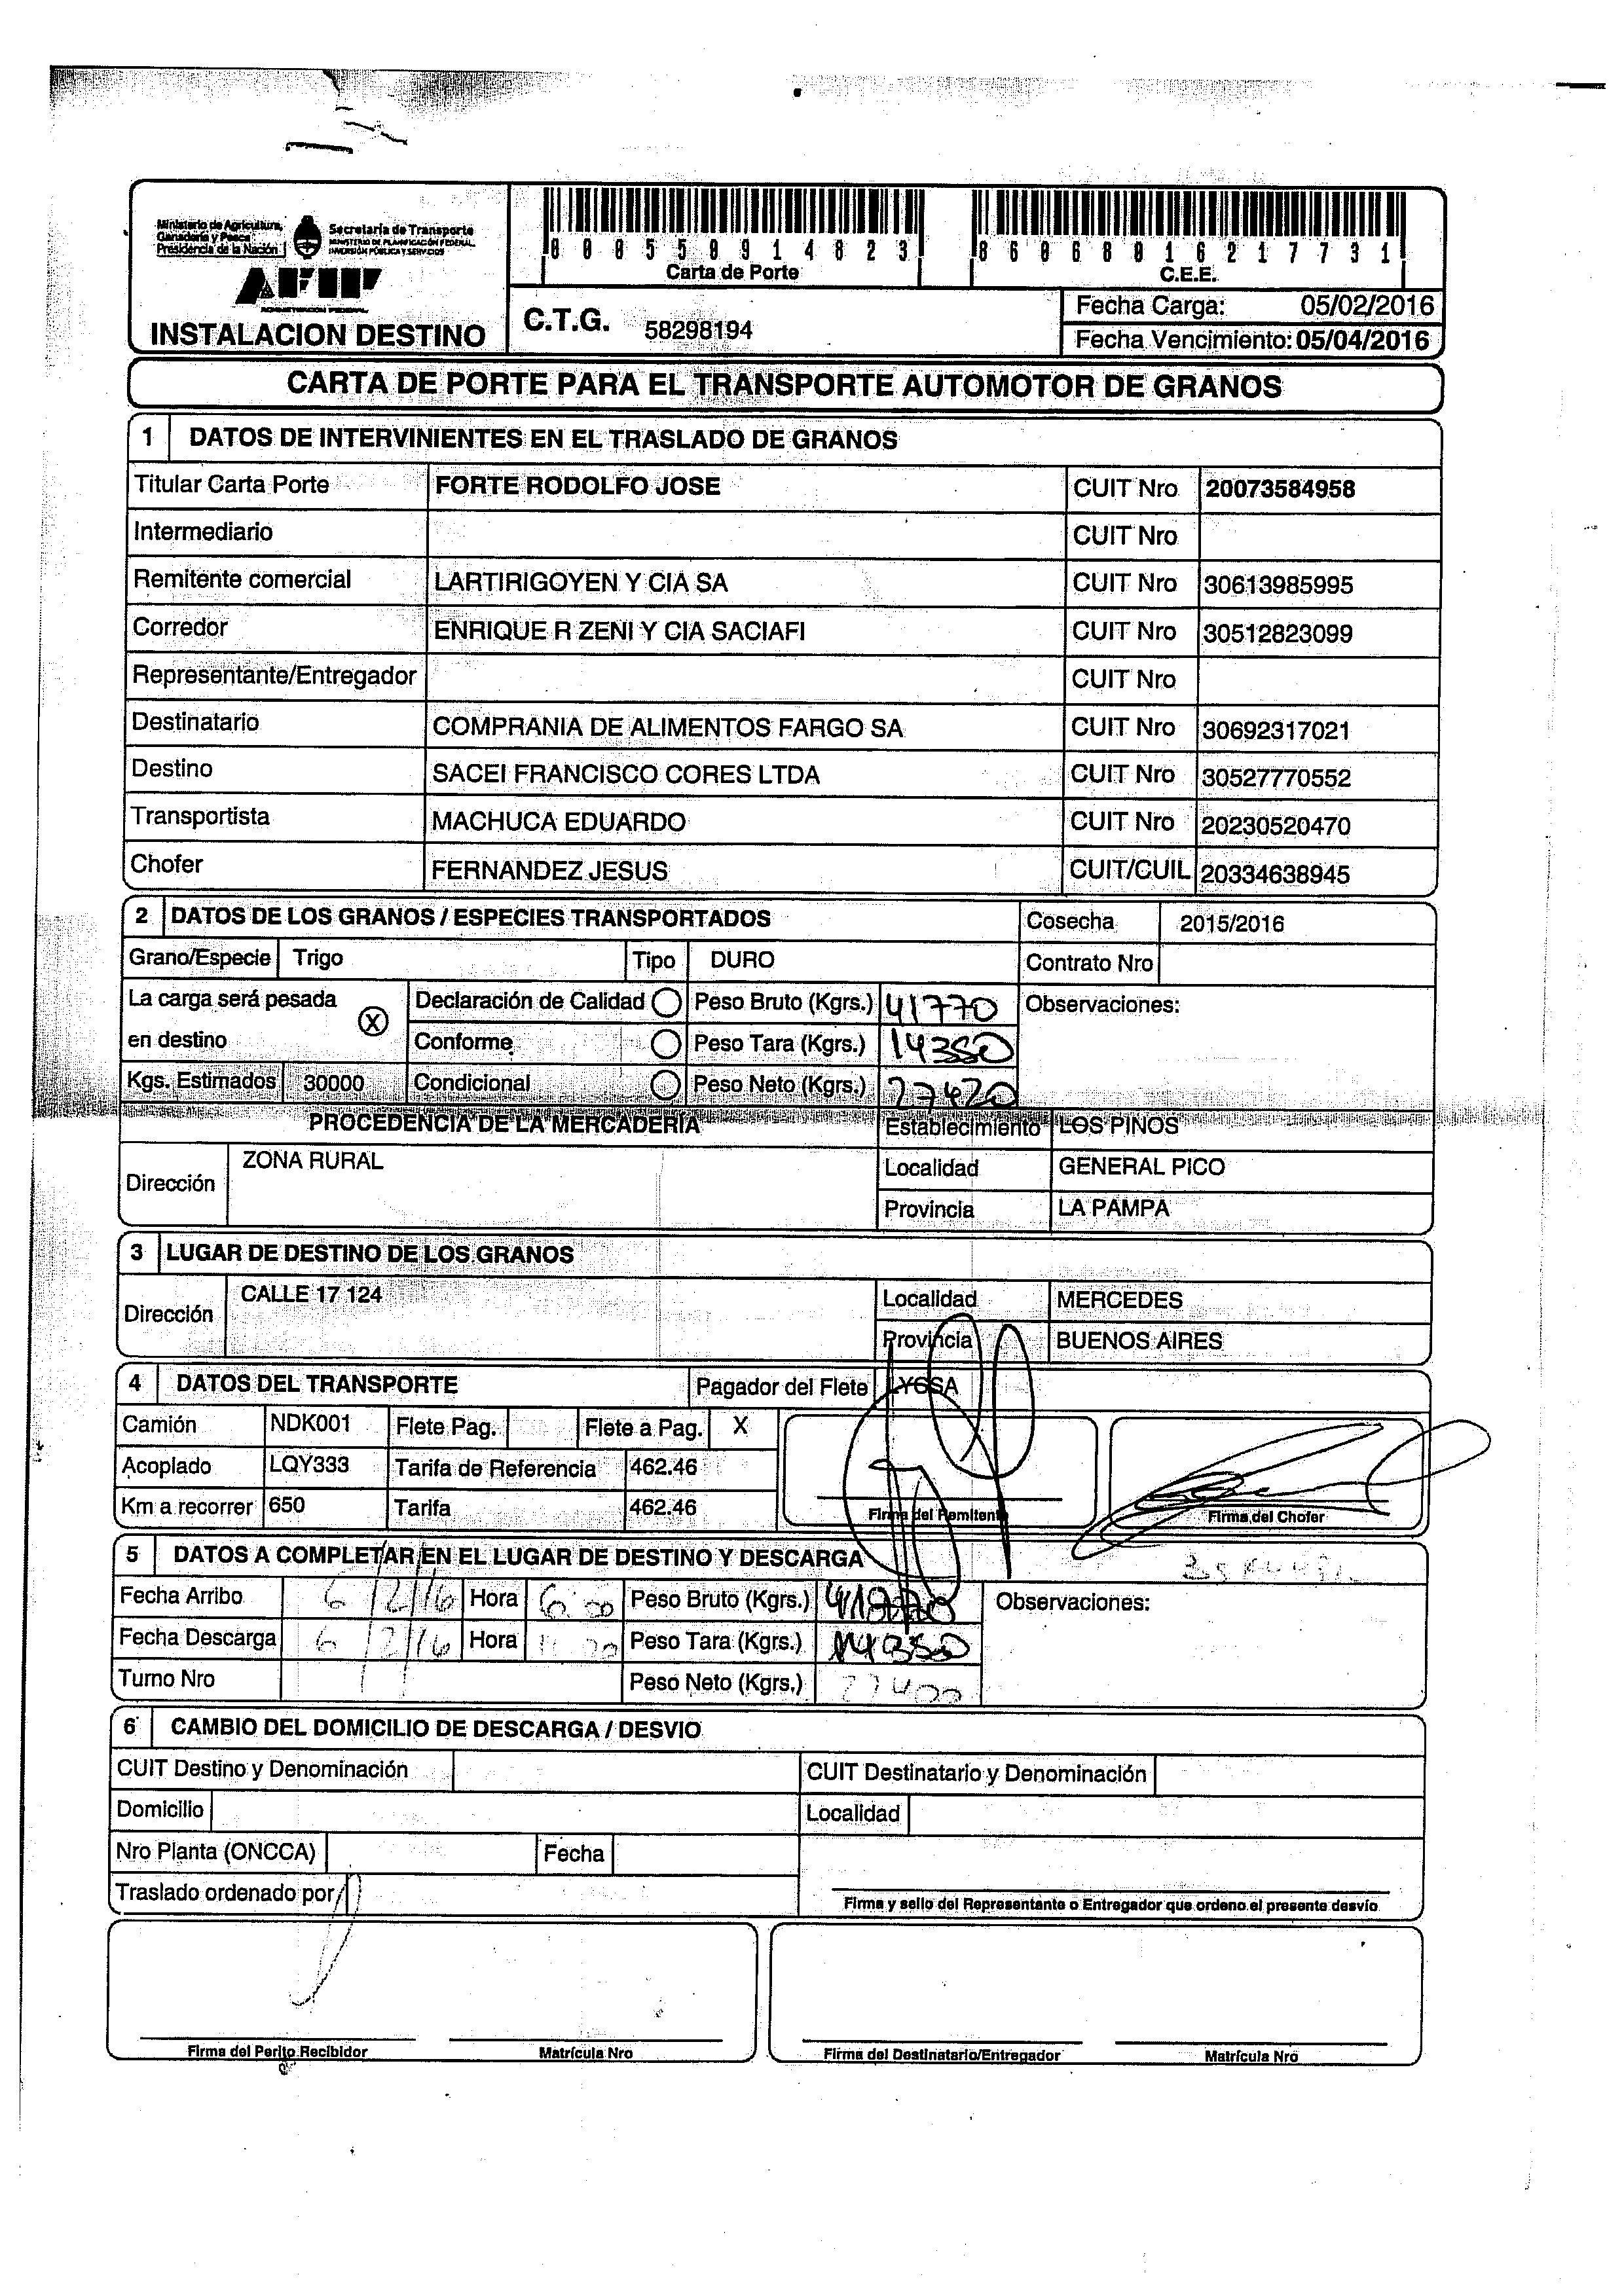 Ministerio de Agricultura,
Ganadería y Pesca
Presidencia de la Nación
Secretaría de Transporte
MINISTERIO DE PLANIFICACIÓN FEDERAL,
INVERSIÓN PÚBLICA Y SERVICIOS
AFIP
ADMINISTRACION FEDERAL
INSTALACION DESTINO
Carta de Porte
8 6 0 6 8 0 1 6 2 1 7 7 3 1
C.E.E.
C.T.G. 58298194
Fecha Carga: 05/02/2016
Fecha Vencimiento: 05/04/2016
CARTA DE PORTE PARA EL TRANSPORTE AUTOMOTOR DE GRANOS
1 DATOS DE INTERVINIENTES EN EL TRASLADO DE GRANOS
Titular Carta Porte FORTE RODOLFO JOSE CUIT Nro 20073584958
Intermediario CUIT Nro
Remitente comercial LARTIRIGOYEN Y CIA SA CUIT Nro 30613985995
Corredor ENRIQUE R ZENI Y CIA SACIAFI CUIT Nro 30512823099
Representante/Entregador CUIT Nro
Destinatario COMPRANIA DE ALIMENTOS FARGO SA CUIT Nro 30692317021
Destino SACEI FRANCISCO CORES LTDA CUIT Nro 30527770552
Transportista MACHUCA EDUARDO CUIT Nro 20230520470
Chofer FERNANDEZ JESUS CUIT/CUIL 20334638945
2 DATOS DE LOS GRANOS / ESPECIES TRANSPORTADOS Cosecha 2015/2016
Grano/Especie Trigo Tipo DURO Contrato Nro
La carga será pesada en destino (X) Declaración de Calidad Peso Bruto (Kgrs.) 41770 Observaciones:
Conforme Peso Tara (Kgrs.) 14350
Kgs. Estimados 30000 Condicional Peso Neto (Kgrs.) 27420
PROCEDENCIA DE LA MERCADERIA Establecimiento LOS PINOS
Dirección ZONA RURAL Localidad GENERAL PICO
Provincia LA PAMPA
3 LUGAR DE DESTINO DE LOS GRANOS
Dirección CALLE 17 124 Localidad MERCEDES
Provincia BUENOS AIRES
4 DATOS DEL TRANSPORTE Pagador del Flete LYCSA
Camión NDK001 Flete Pag. Flete a Pag. X
Acoplado LQY333 Tarifa de Referencia 462.46
Km a recorrer 650 Tarifa 462.46
Firma del Remitente Firma del Chofer
5 DATOS A COMPLETAR EN EL LUGAR DE DESTINO Y DESCARGA
Fecha Arribo 6/2/16 Hora 6:00 Peso Bruto (Kgrs.) Observaciones:
Fecha Descarga 6/2/16 Hora Peso Tara (Kgrs.) 14350
Turno Nro Peso Neto (Kgrs.) 27400
6 CAMBIO DEL DOMICILIO DE DESCARGA / DESVIO
CUIT Destino y Denominación CUIT Destinatario y Denominación
Domicilio Localidad
Nro Planta (ONCCA) Fecha
Traslado ordenado por
Firma y sello del Representante o Entregador que ordeno el presente desvío
Firma del Perito Recibidor Matrícula Nro Firma del Destinatario/Entregador Matrícula Nro